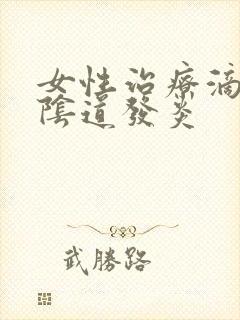 女性治療滴
陰道發炎
武勝路